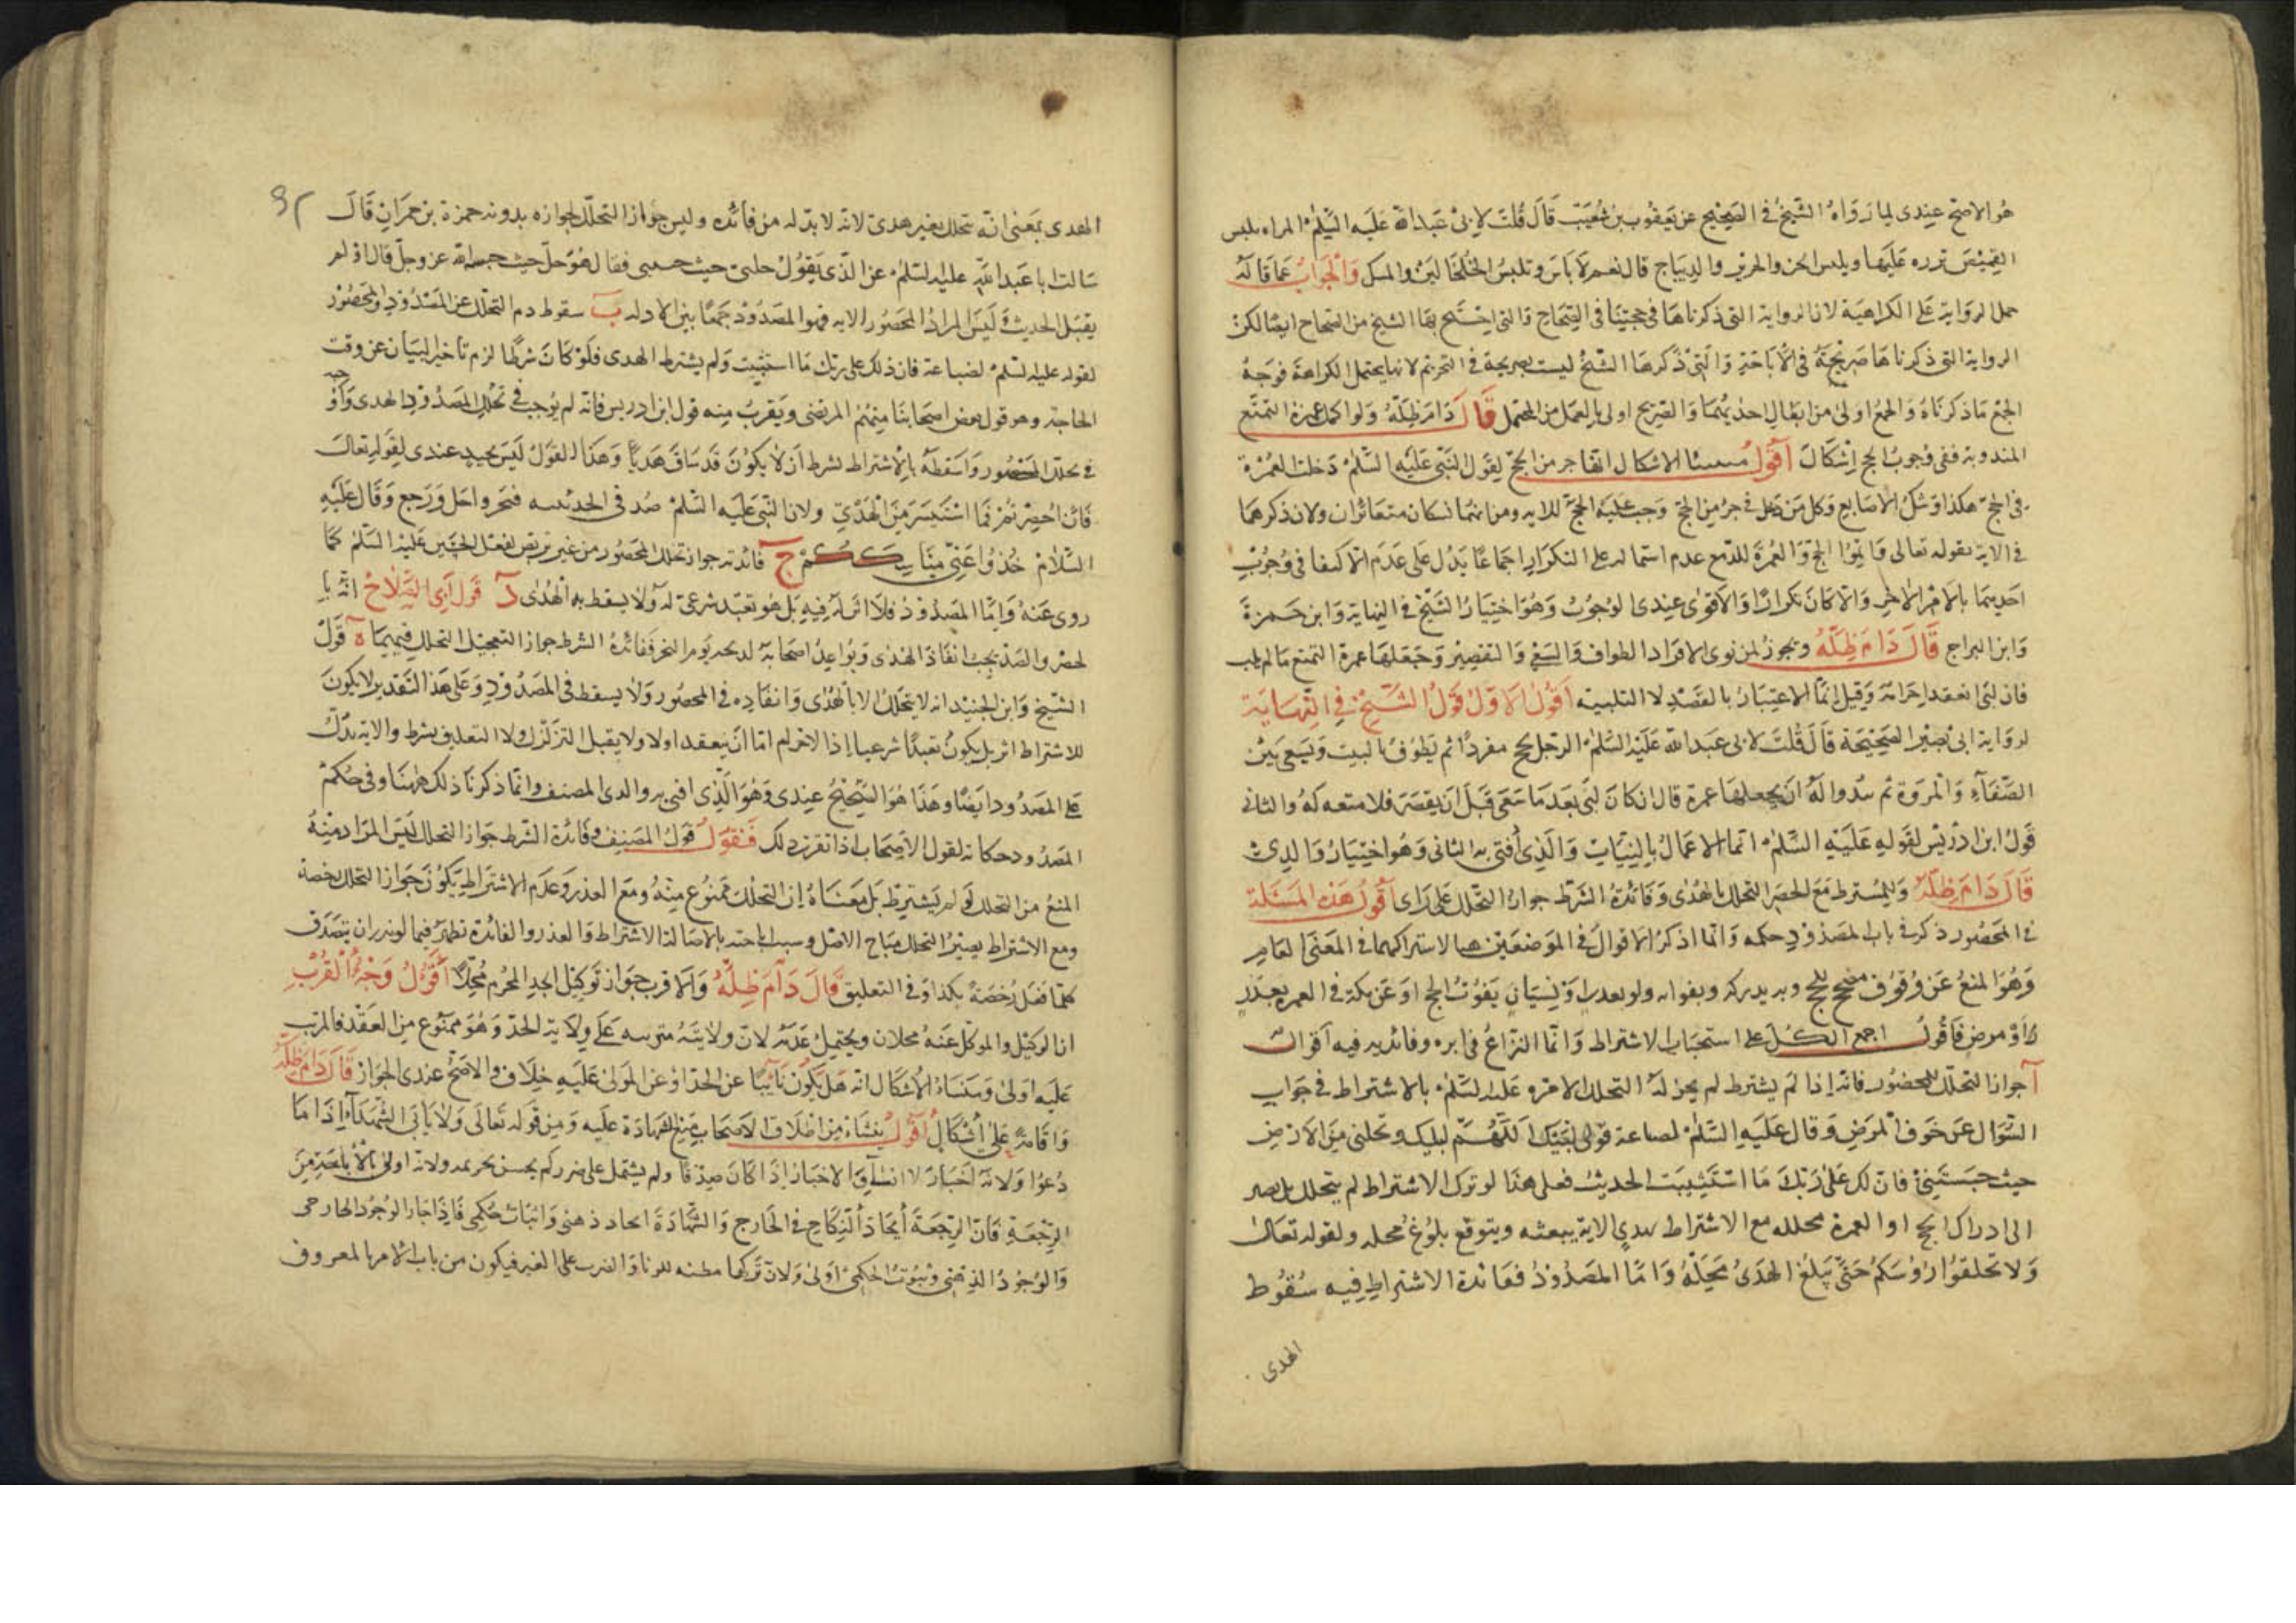 هو الاصح عندى لما رواه الشيخ فى الصحيح عن يعقوب بن شعيب قال قلت لابى عبد الله عليه السلم المراه يلبس
القميص تزره عليها ويلبس الخز والحرير والديباج قال نعم لا باس وتلبس الخلخالين والمسك والجواب عما قاله
حمل الرواية على الكراهية لان الرواية التى ذكرناها فى حجتنا فى الصحاح والتى احتج بها الشيخ من الصحاح ايضا لكن
الرواية التى ذكرناها صريحة فى الاباحة والتى ذكرها الشيخ ليست بصريحة فى التحريم لانها يحتمل الكراهة فوجه
الجمع ما ذكرناه والجمع اولى من ابطال احديهما والصريح اولى بالعمل من المحتمل قال دام ظله ولو اكمل عمرة التمتع
المندوبة ففى وجوب الحج اشكال اقول الاشكال انها جزء من الحج لقول النبى عليه السلم دخلت العمرة
فى الحج هكذا وشبك الاصابع وكل من دخل فى جزء من الحج وجب عليه الحج للاية ومن انهما نسكان متغائران ولان ذكرهما
فى الاية بقوله تعالى واتموا الحج والعمرة لله مع عدم اشتماله على التكرار اجماعا يدل على عدم الاكتفا فى وجوب
احديهما بالامر الاخر والا كان تكرارا والاقوى عندى الوجوب وهو اختيار الشيخ فى النهاية وابن حمزة
وابن البراج قال دام ظله ويجوز لمن نوى الافراد الطواف والسعى والتقصير وجعلها عمرة التمتع ما لم يلب
فان لبى انعقد احرامه وقيل انما الاعتبار بالقصد لا التلبيه اقول الاول قول الشيخ فى النهاية
لرواية ابى بصير الصحيحة قال قلت لابى عبد الله عليه السلم الرجل يحج مفردا ثم يطوف بالبيت ويسعى بين
الصفاء والمروة ثم يبدوا له ان يجعلها عمرة قال ان كان لبى بعد ما سعى قبل ان يقصر فلا متعه له والثانى
قول ابن ادريس لقوله عليه السلم انما الاعمال بالنيات والذى افتى به الثانى وهو اختيار والدى
قال دام ظله وللمشترط مع الحصر التحلل بالهدى وفائدة الشرط جواز التحلل على راى اقول هذه المسئلة
فى المحصور ذكر فى باب المصدود حكمه وانما اذكر الاقوال فى الموضعين هنا لاشتراكهما فى المعنى العام
وهو المنع عن وقوف يفوت الحج او عن مكة فى العمرة بعدو
او مرض فاقول اجمع الكل على استحباب الاشتراط وانما النزاع فى اثره وفائدته فيه اقوال
آ جواز التحلل للمحضور فانه اذا لم يشترط لم يجز له التحلل لامره عليه السلم بالاشتراط فى جواب
السؤال عن خوف المرض وقال عليه السلم لضباعة قولى لبيك اللهم لبيك وتحلنى من الارض
حيث حبستنى فان لك على ربك ما استثنيت الحديث فعلى هذا لو ترك الاشتراط لم يتحلل بل يصبر
الى ادراك الحج او العمرة محلله مع الاشتراط بهدى الاية يبعثه ويتوقع بلوغ محله ولقوله تعالى
ولا تحلقوا رؤسكم حتى يبلغ الهدى محله واما المصدود ففائدة الاشتراط فيه سقوط
الهدى
٩٢
الهدى بمعنى انه يتحلل بغير هدى لانه لا بد له من فائده وليس جواز التحلل لجوازه بدونه حمزة بن حمران قال
سالت ابا عبد الله عليه السلم عن الذى يقول حلنى حيث حبستنى فقال هو حل حيث حبسه الله عز وجل قال او لم
يقبل الحديث وليس المراد المحصور للايه فهو المصدود جمعا بين الادله ب سقوط دم التحلل عن المصدود والمحصور
لقوله عليه السلم لضباعة فان ذلك على ربك ما استثنيت ولم يشترط الهدى فلو كان شرطا لزم تاخير البيان عن وقت
الحاجة وهو قول بعض اصحابنا منهم المرتضى ويقرب منه قول ابن ادريس فانه لم يوجب فى تحلل المصدود الهدى واوجبه
فى تحلل المحصور واسقطه بالاشتراط بشرط ان لا يكون قد ساق هديا وهذا القول ليس بجيد عندى لقوله تعالى
فان احصرتم فما استيسر من الهدى ولان النبى عليه السلم صد فى الحديبيه فنحر واحل ورجع وقال عليه
السلام خذوا عنى مناسككم ج فائدته جواز تحلل المحصور من غير تربص لفعل الحسين عليه السلم كما
روى عنه واما المصدود فلا اثر له فيه بل هو تعبد شرعى له ولا يسقط به الهدى د قول ابى الصلاح انه بالحصر
والصد يجب انفاذ الهدى ويواعد اصحابه لذبحه يوم النحر ففائدة الشرط جواز التعجيل التحلل فيهما ه قول
الشيخ وابن الجنيد انه لا يتحلل الا بالهدى وانفاذه فى المحصور ولا يسقط فى المصدود وعلى هذا التقدير لا يكون
للاشتراط اثر بل يكون تعبدا شرعيا اذ الاحرام اما ان ينعقد اولا ولا يقبل التزلزل ولا التعليق بشرط والاية تدل
على المصدود ايضا وهذا هو الصحيح عندى وهو الذى افتى به والدى المصنف وانما ذكرنا ذلك هيهنا وفى حكم
المصدود حكاية لقول الاصحاب اذا تقرر ذلك فنقول قول المصنف وفائدة الشرط جواز التحلل ليس المراد منه
المنع من التحلل لو لم يشترط بل معناه ان التحلل ممنوع منه ومع العذر وعدم الاشتراط يكون جواز التحلل رخصة
ومع الاشتراط يصير التحلل مباح الاصل وسبب اباحته بالاصالة الاشتراط والعذر والفائدة تظهر فيما لو نذر ان يتصدق
كلما فعل رخصة بكذا وفى التعليق قال دام ظله والاقرب جواز توكيل الجد المحرم محلا اقول وجه القرب
ان الوكيل والموكل عنه محلان ويحتمل عدمه لان ولايته على ولاية الجد وهو ممنوع من العقد فالمرتب
عليه اولى ومنشاء الاشكال انه هل يكون نائبا عن الجد او عن المولى عليه خلاف والاصح عندى الجواز قال دام ظله
واقامة على اشكال اقول ينشاء من اطلاق الاصحاب منع الشهادة عليه ومن قوله تعالى ولا يابى الشهداء اذا ما
دعوا ولانه اخبار لا انشاء والاخبار اذا كان صدقا ولم يشتمل على ضرر لم يحسن تحريمه ولانه اولى بالاباحة من
الرجعة فان الرجعة ايجاد النكاح فى الخارج والشهادة ايجاد ذهنى واثبات حكمى فاذا جاز الوجود الخارجى
والوجود الذهنى وثبوت الحكمى اولى ولان تركها مظنه للزنا والضرب على الغير فيكون من باب الامر بالمعروف